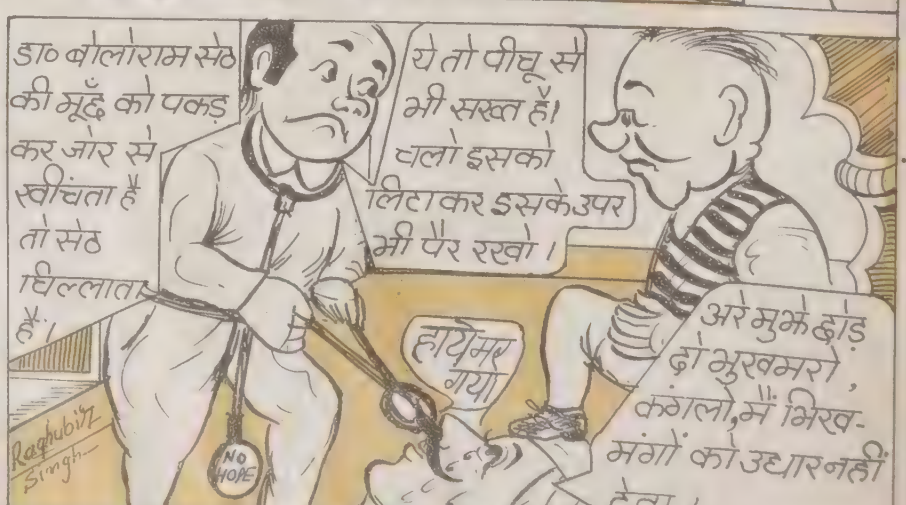 डा० बोलोराम सेठ
की मूँछ को पकड़
कर जोर से
खींचता है
तो सेठ
चिल्लाता
है।
ये तो पीचू से
भी सख्त है।
चलो इसको
लिटाकर इसके उपर
भी पैर रखो।
हाये मर
गया
अरे मुझे छोड़
दो भुखमरो,
कंगलो, मैं भिख-
मंगों को उधार नहीं
देता।
NO
HOPE
Raghubir
Singh